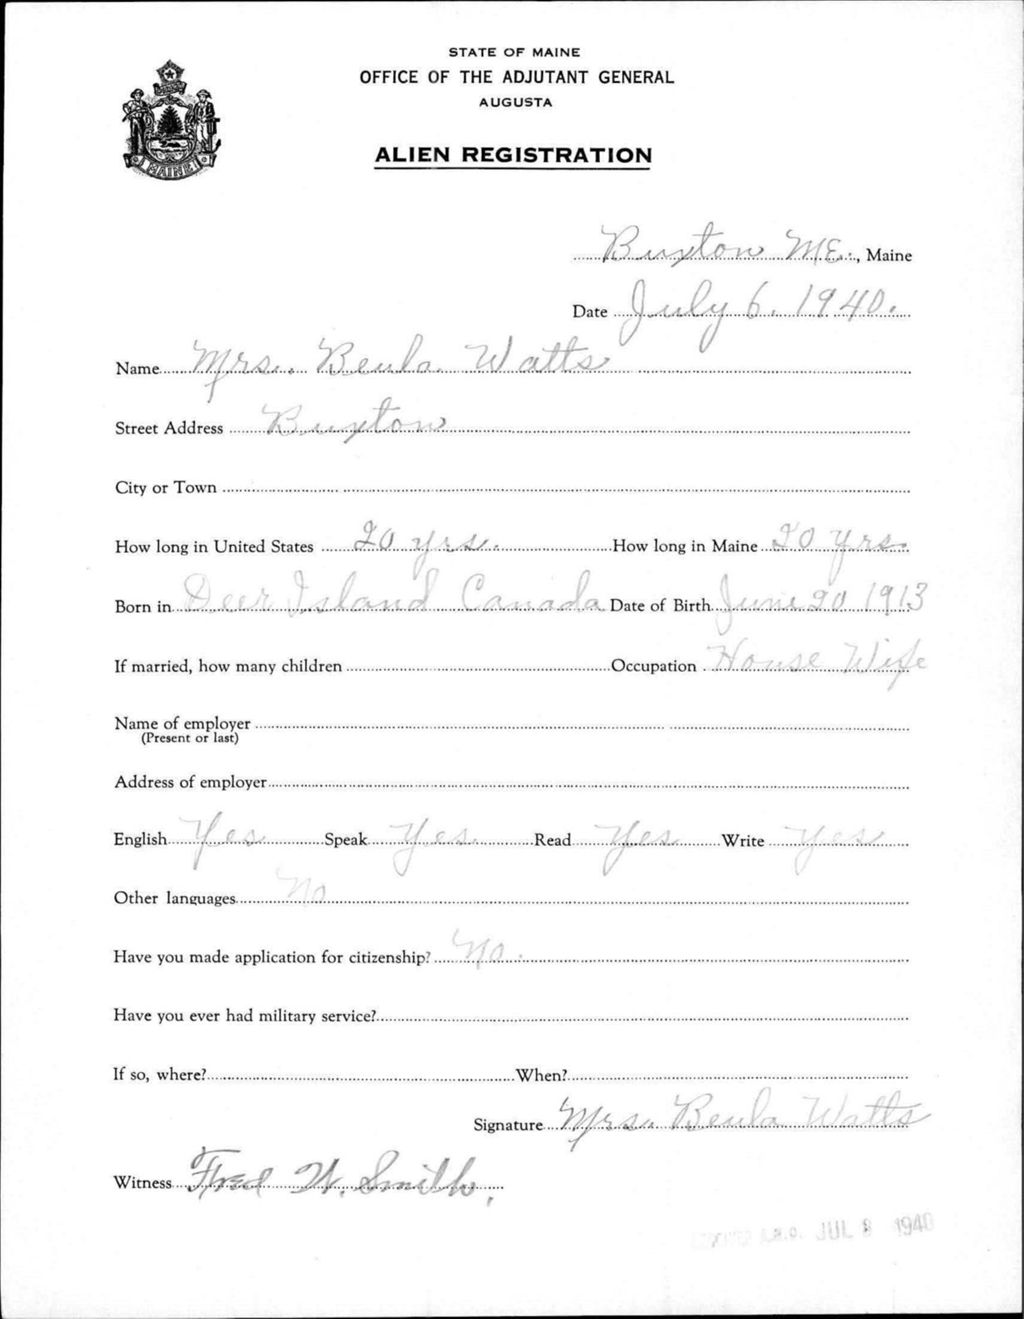 STATE OF MAINE
OFFICE OF THE ADJUTANT GENERAL
AUGUSTA
ALIEN REGISTRATION
MAINE
Buxton ME., Maine
Date July 6. 1940.
Name Mrs. Beula Watts
Street Address Buxton
City or Town
How long in United States 20 yrs. How long in Maine 20 yrs.
Born in Deer Island Canada Date of Birth June 20 1913
If married, how many children Occupation House Wife
Name of employer
(Present or last)
Address of employer
English Yes Speak Yes. Read Yes Write Yes
Other languages No
Have you made application for citizenship? No.
Have you ever had military service?
If so, where? When?
Signature Mrs. Beula Watts
Witness Fred W. Smith.
A.G.O. JUL 8 1940